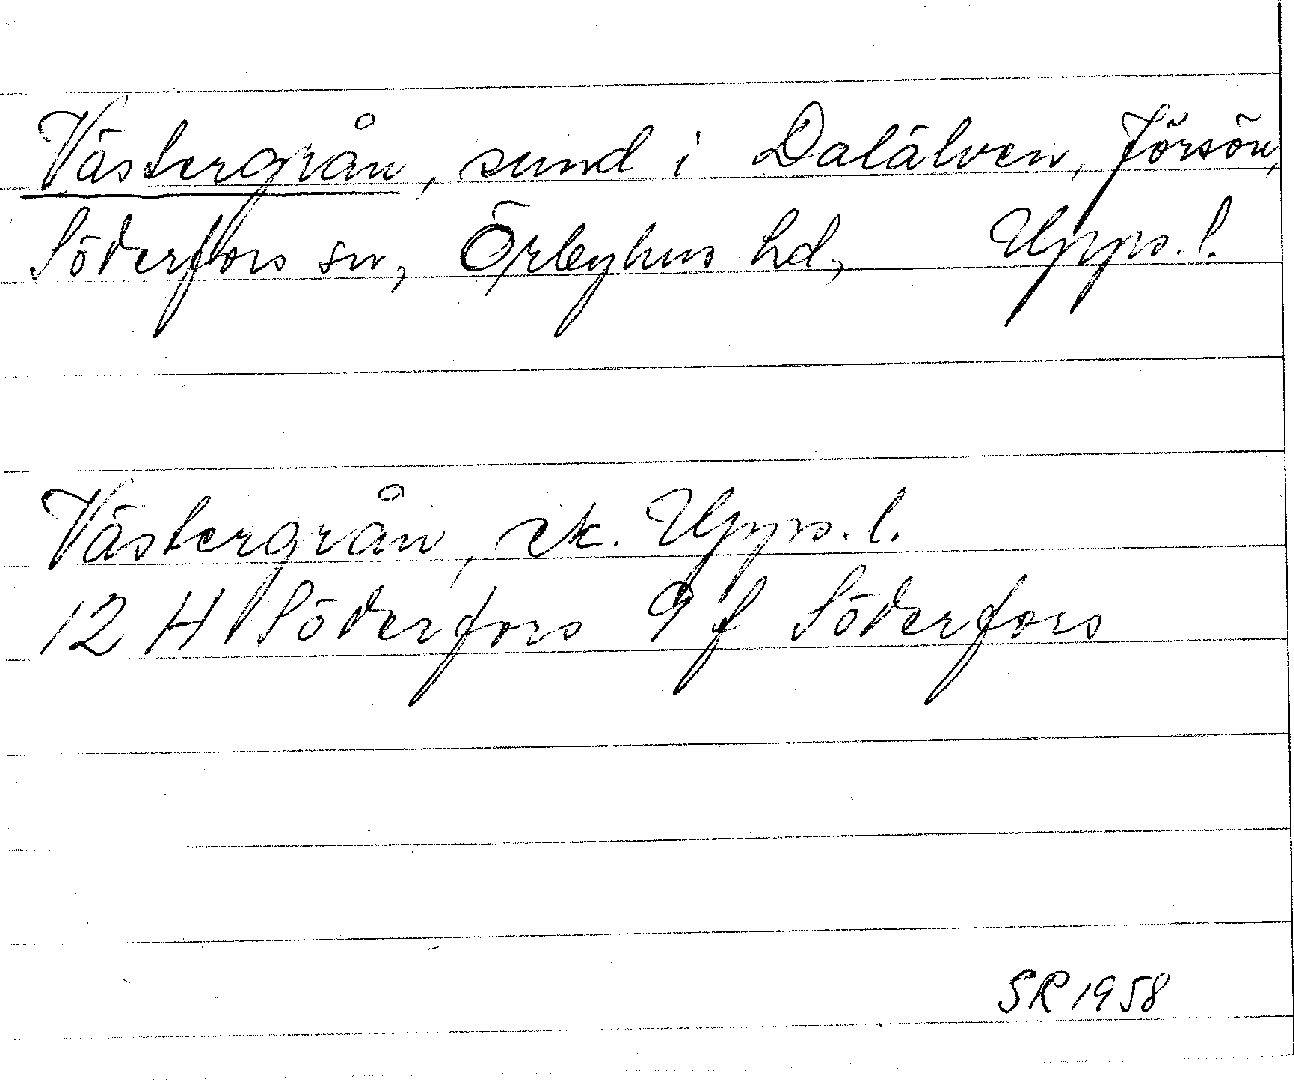 Västergrån, sund i Dalälven, Jörsön,
Söderfors sn, Örbyhus hd, Upps. l.
Västergrån, ek. Upps. l.
12 H Söderfors 9 f Söderfors
SR 1958